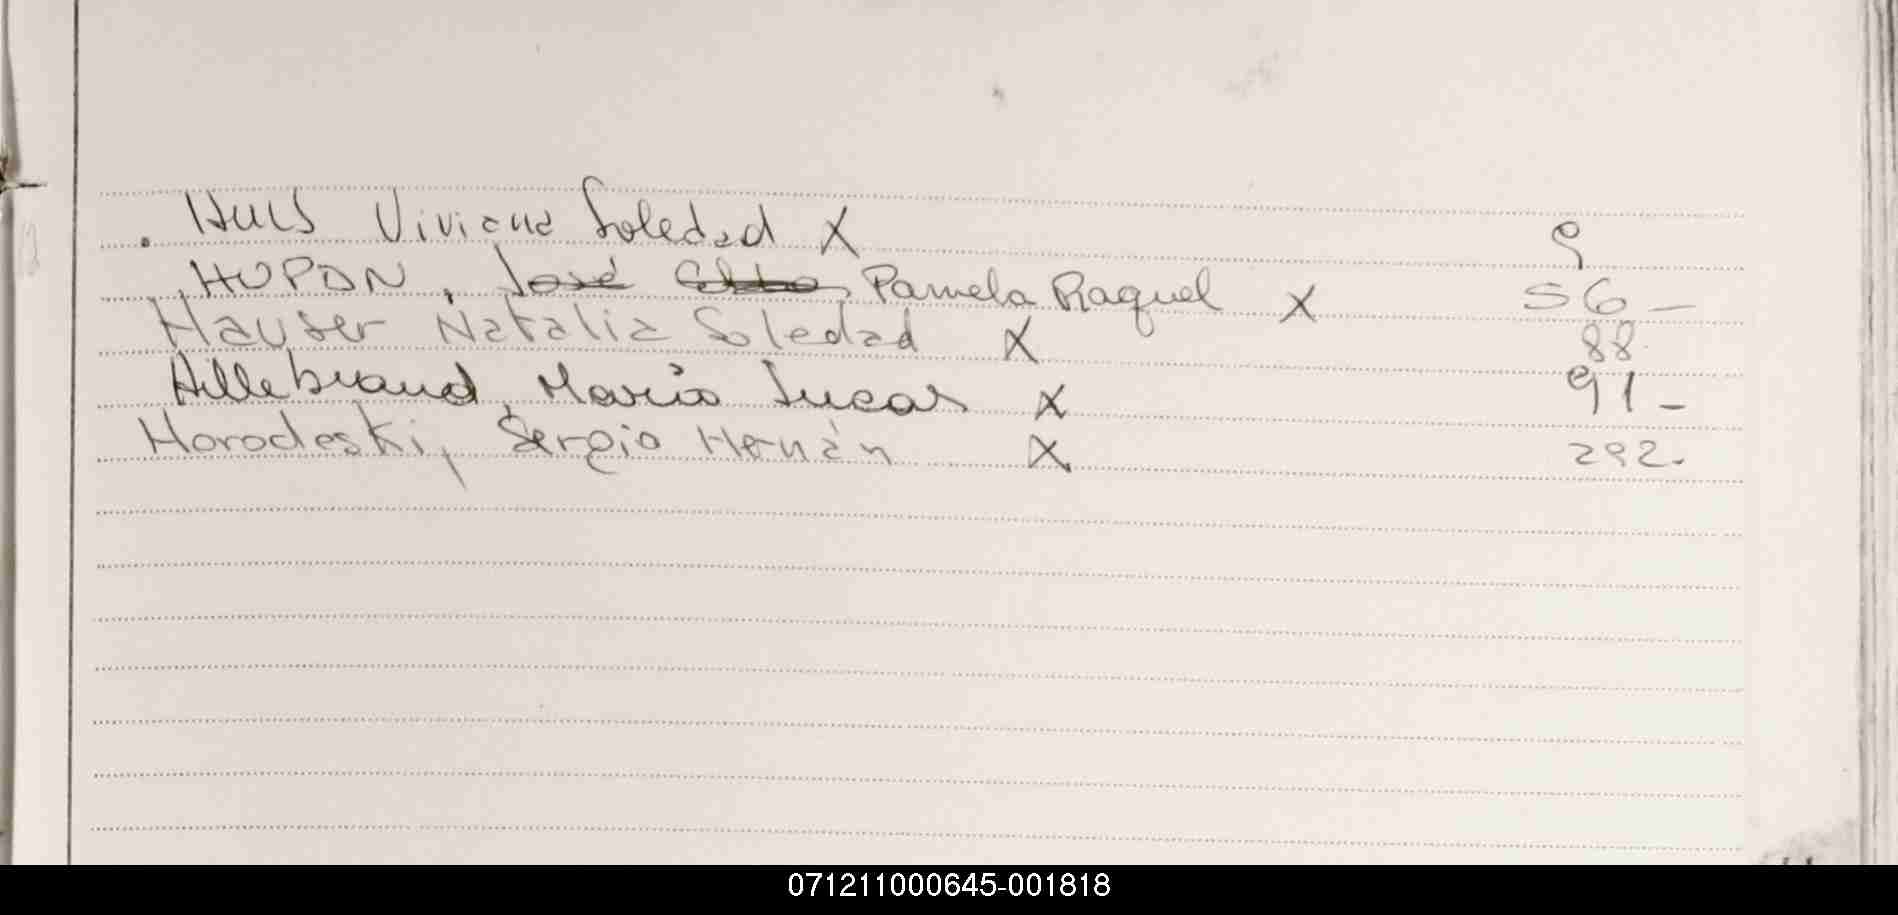 . Huls Viviana Soledad X 9
HUPAN, José Pamela Raquel X 56 -
Hauser Natalia Soledad X 88.
Hillebrand, Mario Lucas X 91 -
Horodeski, Sergio Hernán X 292.
071211000645-001818